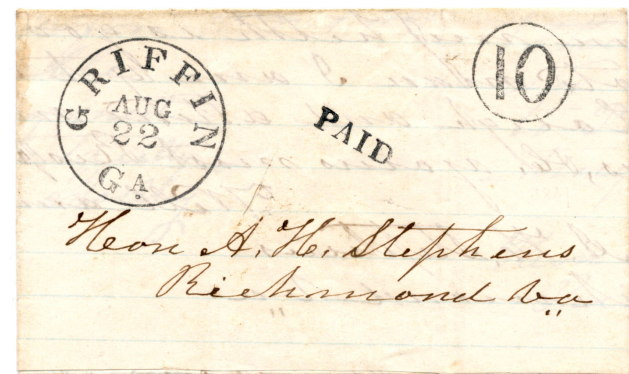 GRIFFIN
AUG
22
GA.
PAID
10
Hon A. H. Stephens
Richmond Va